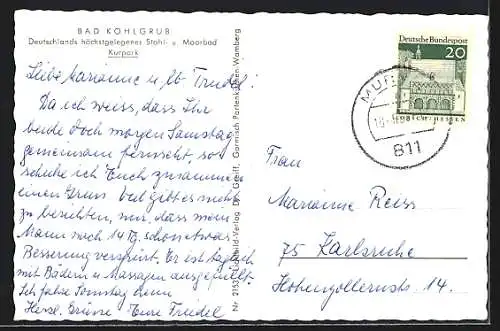 BAD KOHLGRUB
Deutschlands höchstgelegenes Stahl- u. Moorbad
Kurpark
Liebe Marianne u. lb Friedel!
Da ich weiss, dass Ihr
beide doch morgen Samstag
gemeinsam fernseht, so
schicke ich Euch zusammen
einen Gruss. Viel gibt es nicht
zu berichten, nur, dass mein
Mann nach 14 Tg. schon etwas
Besserung verspürt. Er ist täglich
mit Bädern u. Massagen ausgefüllt.
Ich fahre Sonntag heim
Herzl. Grüsse Eure Friedel
Garmisch-Partenkirchen-Wamberg
Deutsche Bundespost
20
LORSCH/HESSEN
MUR
811
Frau
Marianne Reiss
75 Karlsruhe
Hohenzollernstr. 14.